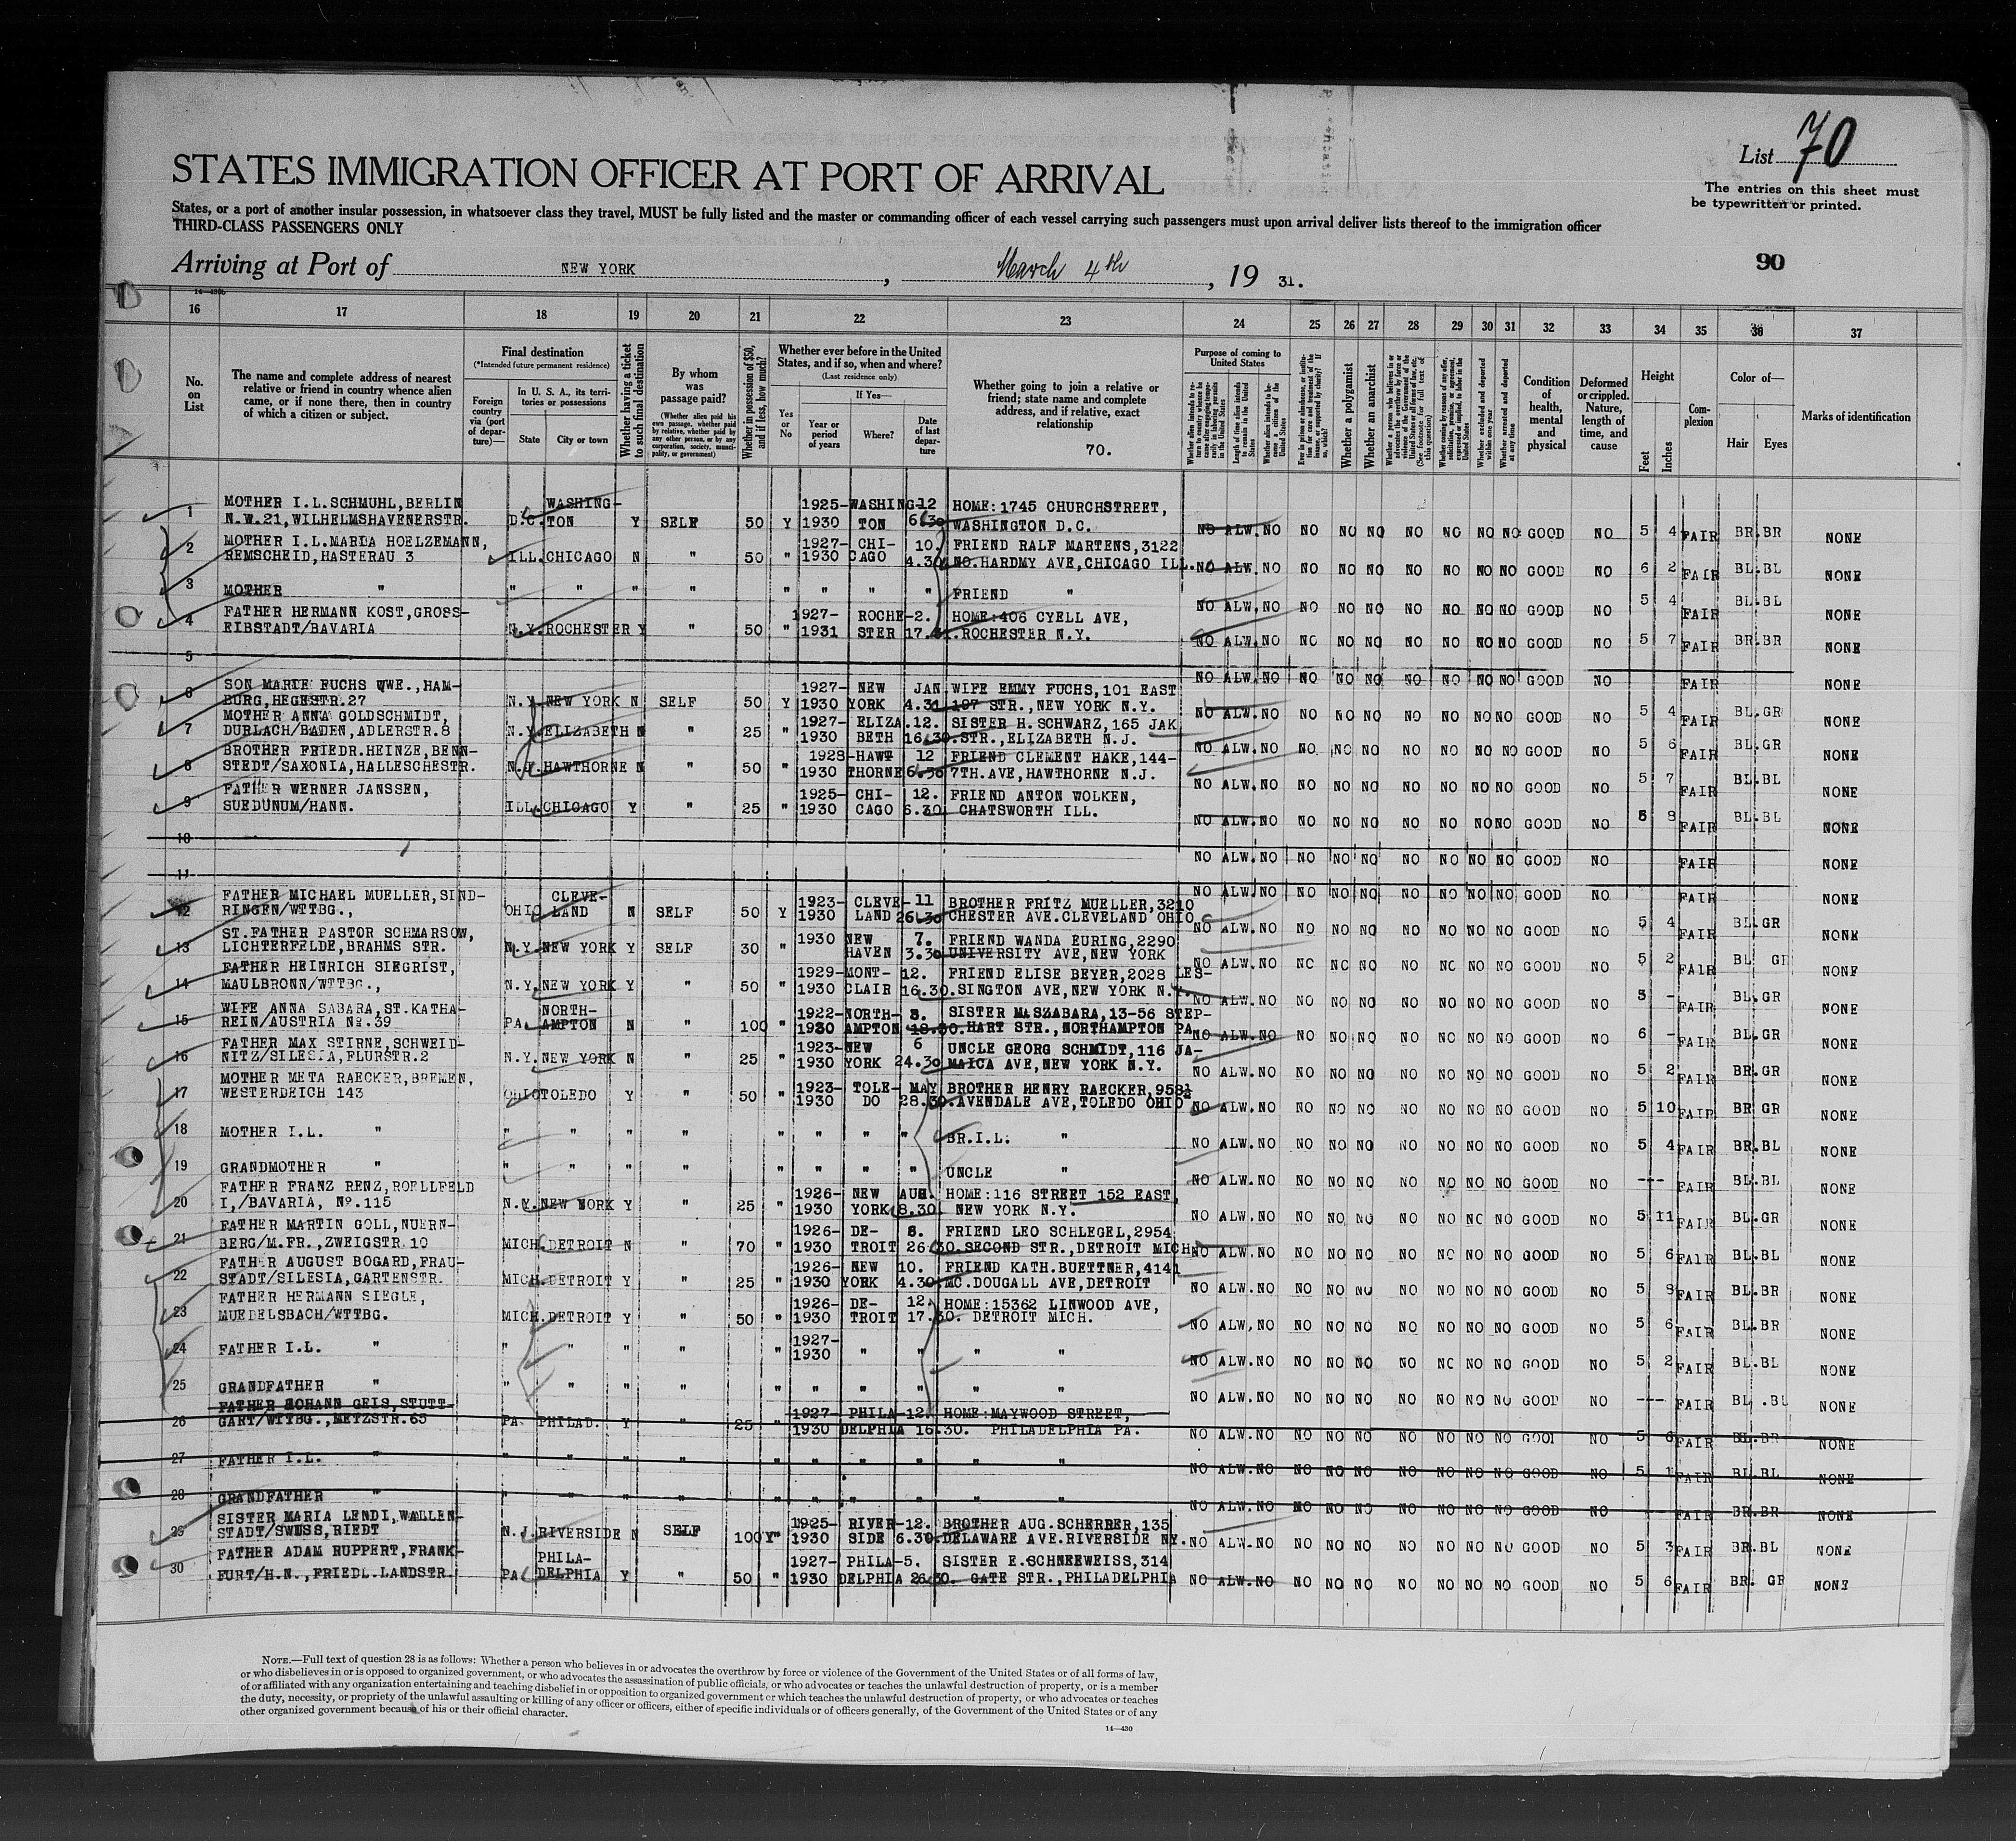 List 70
The entries on this sheet must
be typewritten or printed.
STATES IMMIGRATION OFFICER AT PORT OF ARRIVAL
States, or a port of another insular possession, in whatsoever class they travel, MUST be fully listed and the master or commanding officer of each vessel carrying such passengers must upon arrival deliver lists thereof to the immigration officer
THIRD-CLASS PASSENGERS ONLY
90
Arriving at Port of NEW YORK, March 4th, 19 31.
16 17 18 19 20 21 22 23 24 25 26 27 28 29 30 31 32 33 34 35 36 37
No. on List
The name and complete address of nearest relative or friend in country whence alien came, or if none there, then in country of which a citizen or subject.
Final destination
(*Intended future permanent residence)
Foreign country via (port of departure)—
In U. S. A., its territories or possessions
State
City or town
Whether having a ticket to such final destination
By whom was passage paid?
(Whether alien paid his own passage, whether paid by relative, whether paid by any other person, or by any corporation, society, municipality, or government)
Whether in possession of $50, and if less, how much?
Whether ever before in the United States, and if so, when and where?
(Last residence only)
Yes or No
If Yes—
Year or period of years
Where?
Date of last departure
Whether going to join a relative or friend; state name and complete address, and if relative, exact relationship
70.
Purpose of coming to United States
Whether a polygamist
Whether an anarchist
Condition of health, mental and physical
Deformed or crippled. Nature, length of time, and cause
Height
Feet
Inches
Complexion
Color of—
Hair
Eyes
Marks of identification
1 MOTHER I.L.SCHMUHL,BERLIN WASHING- 1925- WASHING- 12 HOME:1745 CHURCHSTREET,
N.W.21,WILHELMSHAVENERSTR. D.C. TON Y SELF 50 Y 1930 TON 6.30 WASHINGTON D.C. NO ALW. NO NO NO NO NO NO NO NO GOOD NO 5 4 FAIR BR.BR NONE
2 MOTHER I.L.MARIA HOELZEMANN, 1927- CHI- 10. FRIEND RALF MARTENS,3122
REMSCHEID,HASTERAU 3 ILL. CHICAGO N " 50 " 1930 CAGO 4.30 NO.HARDMY AVE,CHICAGO ILL. NO ALW. NO NO NO NO NO NO NO NO GOOD NO 6 2 FAIR BL.BL NONE
3 MOTHER " " " " " " " " " FRIEND " NO ALW. NO NO NO NO NO NO NO NO GOOD NO 5 4 FAIR BL.BL NONE
4 FATHER HERMANN KOST,GROSS- 1927- ROCHE- 2. HOME:406 CYELL AVE,
EIBSTADT/BAVARIA N.Y. ROCHESTER Y " 50 " 1931 STER 17.31. ROCHESTER N.Y. NO ALW. NO NO NO NO NO NO NO NO GOOD NO 5 7 FAIR BR.BR NONE
5 NO ALW. NO NO NO NO NO NO NO NO GOOD NO FAIR NONE
6 SON MARTE FUCHS QWE.,HAM- 1927- NEW JAN WIFE EMMY FUCHS,101 EAST
BURG,HEGESTR.27 N.Y. NEW YORK N SELF 50 Y 1930 YORK 4.31 107 STR.,NEW YORK N.Y. NO ALW. NO NO NO NO NO NO NO NO GOOD NO 5 4 FAIR BL.GR NONE
7 MOTHER ANNA GOLDSCHMIDT, 1927- ELIZA. 12. SISTER H.SCHWARZ,165 JAK
DURLACH/BADEN,ADLERSTR.8 N.Y. ELIZABETH N " 25 " 1930 BETH 16.30. STR.,ELIZABETH N.J. NO ALW. NO NO NO NO NO NO NO NO GOOD NO 5 6 FAIR BL.GR NONE
8 BROTHER FRIEDR.HEINZE,BENN- 1928- HAWT 12 FRIEND CLEMENT HAKE,144-
STEDT/SAXONIA,HALLESCHESTR. N.J. HAWTHORNE N " 50 " 1930 THORNE 6.30 7TH.AVE,HAWTHORNE N.J. NO ALW. NO NO NO NO NO NO NO NO GOOD NO 5 7 FAIR BL.BL NONE
9 FATHER WERNER JANSSEN, 1925- CHI- 12. FRIEND ANTON WOLKEN,
SUEDUNUM/HANN. ILL. CHICAGO Y " 25 " 1930 CAGO 6.30. CHATSWORTH ILL. NO ALW. NO NO NO NO NO NO NO NO GOOD NO 5 8 FAIR BL.BL NONE
10 NO ALW. NO NO NO NO NO NO NO NO GOOD NO FAIR NONE
11 NO ALW. NO NO NO NO NO NO NO NO GOOD NO FAIR NONE
12 FATHER MICHAEL MUELLER,SIND- CLEVE- 1923- CLEVE- 11 BROTHER FRITZ MUELLER,3210
RINGEN/WTTBG., OHIO LAND N SELF 50 Y 1930 LAND 26.30 CHESTER AVE.CLEVELAND OHIO NO ALW. NO NO NO NO NO NO NO NO GOOD NO 5 4 FAIR BL.GR NONE
13 ST.FATHER PASTOR SCHMARSOW, 1930 NEW 7. FRIEND WANDA EURING,2290
LICHTERFELDE,BRAHMS STR. N.Y. NEW YORK Y SELF 30 " HAVEN 3.30 UNIVERSITY AVE,NEW YORK NO ALW. NO NO NO NO NO NO NO NO GOOD NO 5 2 FAIR BL GR NONE
14 FATHER HEINRICH SIEGRIST, 1929- MONT- 12. FRIEND ELISE BEYER,2028 LES-
MAULBRONN/WTTBG., N.Y. NEW YORK Y " 50 " 1930 CLAIR 16.30. SINGTON AVE,NEW YORK N.Y. NO ALW. NO NO NO NO NO NO NO NO GOOD NO 5 - FAIR BL.GR NONE
15 WIFE ANNA SABARA,ST.KATHA- NORTH- 1922- NORTH- 8. SISTER M.SZABARA,13-56 STEP-
REIN/AUSTRIA No.39 PA. AMPTON N " 100 " 1930 AMPTON 18.30. HART STR.,NORTHAMPTON PA NO ALW. NO NO NO NO NO NO NO NO GOOD NO 6 - FAIR BL.GR NONE
16 FATHER MAX STIRNE,SCHWEID- 1923- NEW 6 UNCLE GEORG SCHMIDT,116 JA-
NITZ/SILESIA,FLURSTR.2 N.Y. NEW YORK N " 25 " 1930 YORK 24.30 MAICA AVE,NEW YORK N.Y. NO ALW. NO NO NO NO NO NO NO NO GOOD NO 5 2 FAIR BR.GR NONE
17 MOTHER META RAECKER,BREMEN, 1923- TOLE- MAY BROTHER HENRY RAECKER,958½
WESTERDEICH 143 OHIO TOLEDO Y " 50 " 1930 DO 28.30. AVENDALE AVE,TOLEDO OHIO NO ALW. NO NO NO NO NO NO NO NO GOOD NO 5 10 FAIR BR GR NONE
18 MOTHER I.L. " " " " " " " " " BR.I.L. " NO ALW. NO NO NO NO NO NO NO NO GOOD NO 5 4 FAIR BR.BL NONE
19 GRANDMOTHER " " " " " " " " UNCLE " NO ALW. NO NO NO NO NO NO NO NO GOOD NO --- FAIR BL.BL NONE
20 FATHER FRANZ RENZ,ROELLFELD 1926- NEW AUG. HOME:116 STREET 152 EAST,
I,/BAVARIA, No.115 N.Y. NEW YORK Y " 25 " 1930 YORK 8.30. NEW YORK N.Y. NO ALW. NO NO NO NO NO NO NO NO GOOD NO 5 11 FAIR BL.GR NONE
21 FATHER MARTIN GOLL,NUERN- 1926- DE- 8. FRIEND LEO SCHLEGEL,2954
BERG/M.FR.,ZWEIGSTR.10 MICH. DETROIT N " 70 " 1930 TROIT 26.30. SECOND STR.,DETROIT MICH NO ALW. NO NO NO NO NO NO NO NO GOOD NO 5 6 FAIR BL.BL NONE
22 FATHER AUGUST BOGARD,FRAU- 1926- NEW 10. FRIEND KATH.BUETTNER,4141
STADT/SILESIA,GARTENSTR. MICH. DETROIT Y " 25 " 1930 YORK 4.30. MC.DOUGALL AVE,DETROIT NO ALW. NO NO NO NO NO NO NO NO GOOD NO 5 8 FAIR BL.BR NONE
23 FATHER HERMANN SIEGLE, 1926- DE- 12. HOME:15362 LINWOOD AVE,
MUEDELSBACH/WTTBG. MICH. DETROIT Y " 50 " 1930 TROIT 17.30. DETROIT MICH. NO ALW. NO NO NO NO NO NO NO NO GOOD NO 5 6 FAIR BL.BR NONE
24 FATHER I.L. " " " " " " 1927-1930 " " " " NO ALW. NO NO NO NO NO NO NO NO GOOD NO 5 2 FAIR BL.BL NONE
25 GRANDFATHER " " " " " " " " " " " NO ALW. NO NO NO NO NO NO NO NO GOOD NO --- FAIR BL.BL NONE
26 FATHER JOHANN GEIS,STUTT- 1927- PHILA- 12. HOME:MAYWOOD STREET,
GART/WTTBG.,METZSTR.65 PA. PHILAD. Y " 25 " 1930 DELPHIA 16.30. PHILADELPHIA PA. NO ALW. NO NO NO NO NO NO NO NO GOOD NO 5 6 FAIR BL.BR NONE
27 FATHER I.L. " " " " " " " " " " " NO ALW. NO NO NO NO NO NO NO NO GOOD NO 5 1 FAIR BL.BL NONE
28 GRANDFATHER " " " " " " " " " " " NO ALW. NO NO NO NO NO NO NO NO GOOD NO FAIR BR.BR NONE
29 SISTER MARIA LENDI,WALLEN- 1925- RIVER- 12. BROTHER AUG.SCHERRER,135
STADT/SWISS,RIEDT N.J. RIVERSIDE N SELF 100 Y" 1930 SIDE 6.30. DELAWARE AVE.RIVERSIDE NY. NO ALW. NO NO NO NO NO NO NO NO GOOD NO 5 3 FAIR BR.BL NONE
30 FATHER ADAM RUPPERT,FRANK- PHILA- 1927- PHILA- 5. SISTER E.SCHNEEWEISS,314
FURT/H.N.,FRIEDL.LANDSTR. PA DELPHIA Y " 50 " 1930 DELPHIA 26.30. GATE STR.,PHILADELPHIA NO ALW. NO NO NO NO NO NO NO NO GOOD NO 5 6 FAIR BR. GR NONE
NOTE.—Full text of question 28 is as follows: Whether a person who believes in or advocates the overthrow by force or violence of the Government of the United States or of all forms of law,
or who disbelieves in or is opposed to organized government, or who advocates the assassination of public officials, or who advocates or teaches the unlawful destruction of property, or is a member
of or affiliated with any organization entertaining and teaching disbelief in or opposition to organized government or which teaches the unlawful destruction of property, or who advocates or teaches
the duty, necessity, or propriety of the unlawful assaulting or killing of any officer or officers, either of specific individuals or of officers generally, of the Government of the United States or of any
other organized government because of his or their official character.
14—430